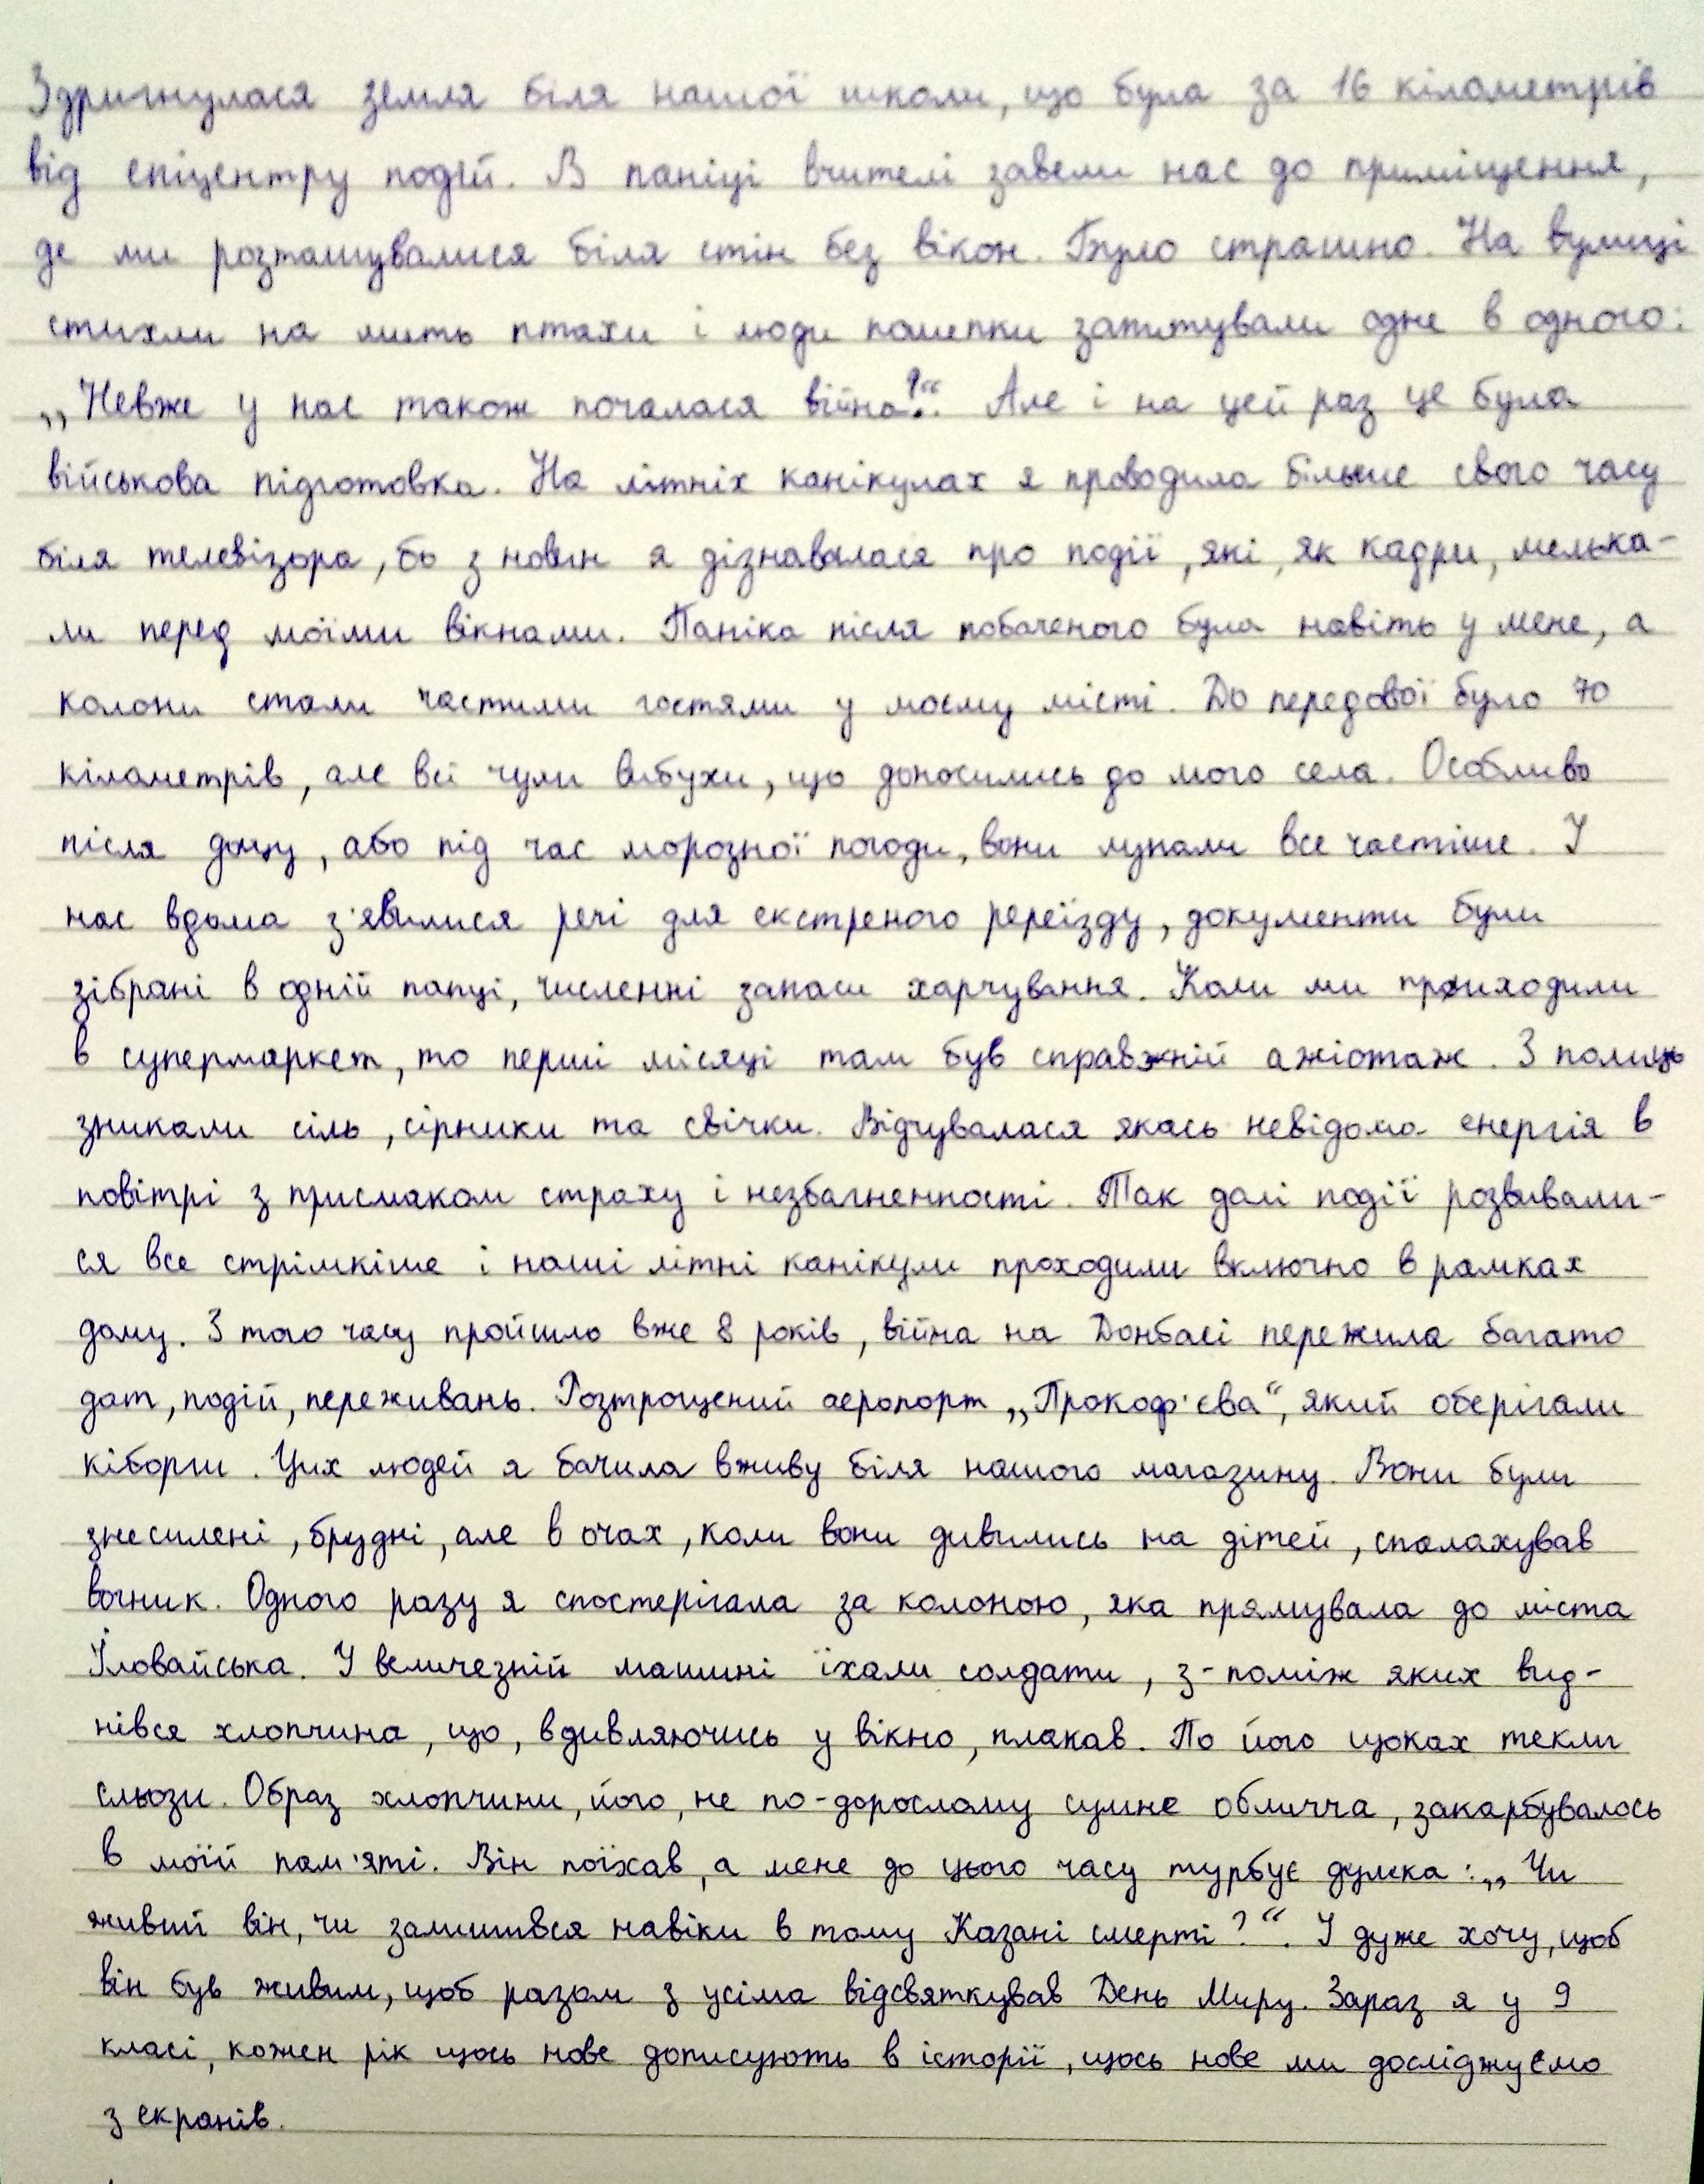 Здригнулася земля біля нашої школи, що була за 16 кілометрів
від епіцентру подій. В паніці вчителі завели нас до приміщення,
де ми розташувалися біля стін без вікон. Було страшно. На вулиці
стихли на мить птахи і люди пошепки запитували одне в одного:
„Невже у нас також почалася війна?“. Але і на цей раз це була
військова підготовка. На літніх канікулах я проводила більше свого часу
біля телевізора, бо з новин я дізнавалася про події, які, як кадри, мелька-
ли перед моїми вікнами. Паніка після побаченого була навіть у мене, а
колони стали частими гостями у моєму місті. До передової було 70
кілометрів, але всі чули вибухи, що доносились до мого села. Особливо
після дощу, або під час морозної погоди, вони лунали все частіше. У
нас вдома з'явилися речі для екстреного переїзду, документи були
зібрані в одній папці, численні запаси харчування. Коли ми приходили
в супермаркет, то перші місяці там був справжній ажіотаж. З полиць
зникали сіль, сірники та свічки. Відчувалася якась невідома енергія в
повітрі з присмаком страху і незбагненності. Так далі події розвивали-
ся все стрімкіше і наші літні канікули проходили включно в рамках
дому. З того часу пройшло вже 8 років, війна на Донбасі пережила багато
дат, подій, переживань. Розтрощений аеропорт „Прокоф'єва“, який оберігали
кіборги. Цих людей я бачила вживу біля нашого магазину. Вони були
знесилені, брудні, але в очах, коли вони дивились на дітей, спалахував
вогник. Одного разу я спостерігала за колоною, яка прямувала до міста
Іловайська. У величезній машині їхали солдати, з-поміж яких вид-
нівся хлопчина, що, вдивляючись у вікно, плакав. По його щоках текли
сльози. Образ хлопчини, його, не по-дорослому сумне обличча, закарбувалось
в моїй пам'яті. Він поїхав, а мене до цього часу турбує думка: „Чи
живий він, чи залишився навіки в тому Казані смерті?“. І дуже хочу, щоб
він був живим, щоб разом з усіма відсвяткував День Миру. Зараз я у 9
класі, кожен рік щось нове дописують в історії, щось нове ми досліджуємо
з екранів.